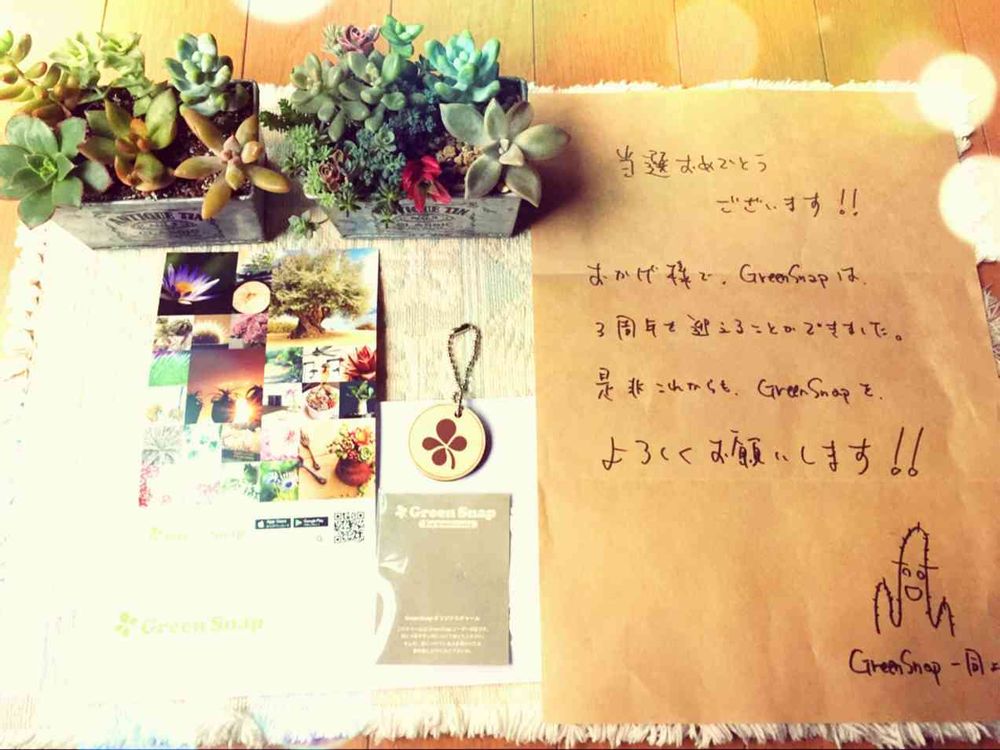 ANTIQUE TIN
ANTIQUE TIN
CLASSIC
当選おめでとう
ございます!!
おかげ様で、GreenSnapは、
3周年を迎えることができました。
是非これからも、GreenSnapを、
よろしくお願いします!!
GreenSnap一同より
App Store
Google Play
Green Snap
Green Snap
Green Snap